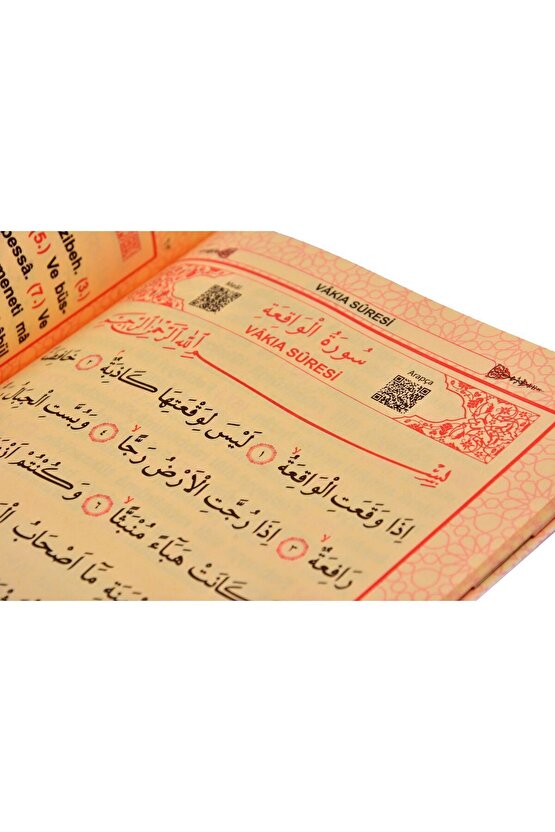 zibeh. (3.)
(5.) Ve büs-
bessâ. (7.) Ve
meneti mâ
VÂKIA SÛRESİ
Meâl
سُورَةُ الْوَاقِعَةِ
VÂKIA SÛRESİ
Arapça
بِسْمِ اللهِ الرَّحْمٰنِ الرَّحِيمِ
اِذَا وَقَعَتِ الْوَاقِعَةُۙ ﴿١﴾ لَيْسَ لِوَقْعَتِهَا كَاذِبَةٌۢ ﴿٢﴾ خَافِضَةٌ
رَافِعَةٌۙ ﴿٣﴾ اِذَا رُجَّتِ الْاَرْضُ رَجًّاۙ ﴿٤﴾ وَبُسَّتِ الْجِبَالُ
كَانَتْ هَبَٓاءً مُنْبَثًّاۙ ﴿٦﴾ وَكُنْتُمْ
مَٓا اَصْحَابُ